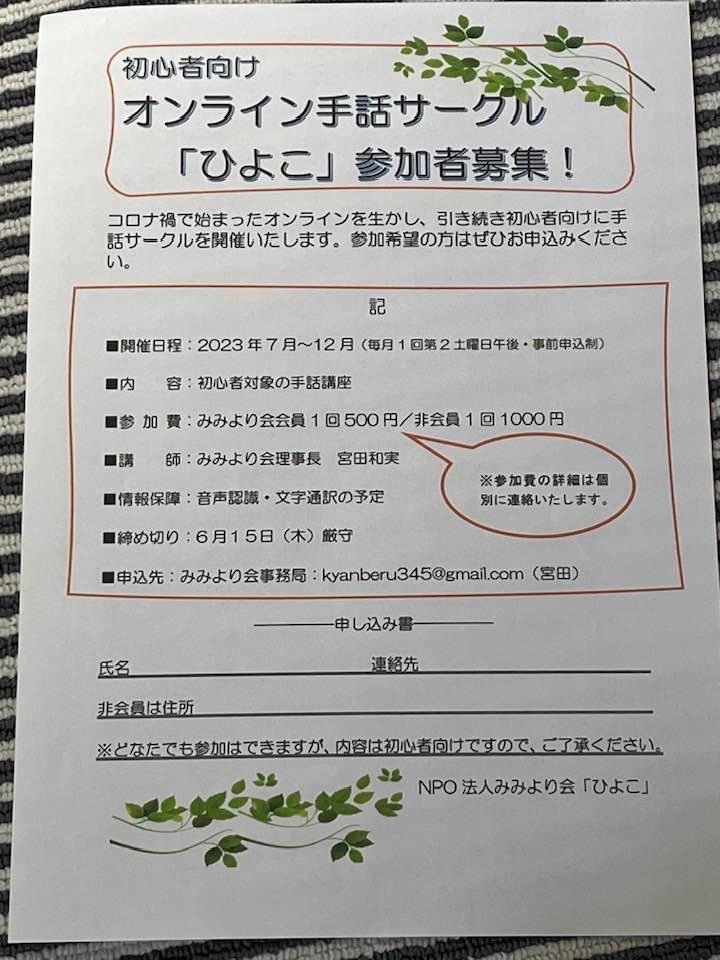 初心者向け
オンライン手話サークル
「ひよこ」参加者募集！
コロナ禍で始まったオンラインを生かし、引き続き初心者向けに手
話サークルを開催いたします。参加希望の方はぜひお申込みくださ
い。
記
■開催日程：2023年7月～12月（毎月1回第2土曜日午後・事前申込制）
■内　　容：初心者対象の手話講座
■参 加 費：みみより会会員1回500円／非会員1回1000円
■講　　師：みみより会理事長　宮田和実
※参加費の詳細は個
別に連絡いたします。
■情報保障：音声認識・文字通訳の予定
■締め切り：6月15日（木）厳守
■申込先：みみより会事務局：kyanberu345@gmail.com（宮田）
――――――申し込み書――――――
氏名　　　　　　　　　　　　　連絡先
非会員は住所
※どなたでも参加はできますが、内容は初心者向けですので、ご了承ください。
NPO法人みみより会「ひよこ」